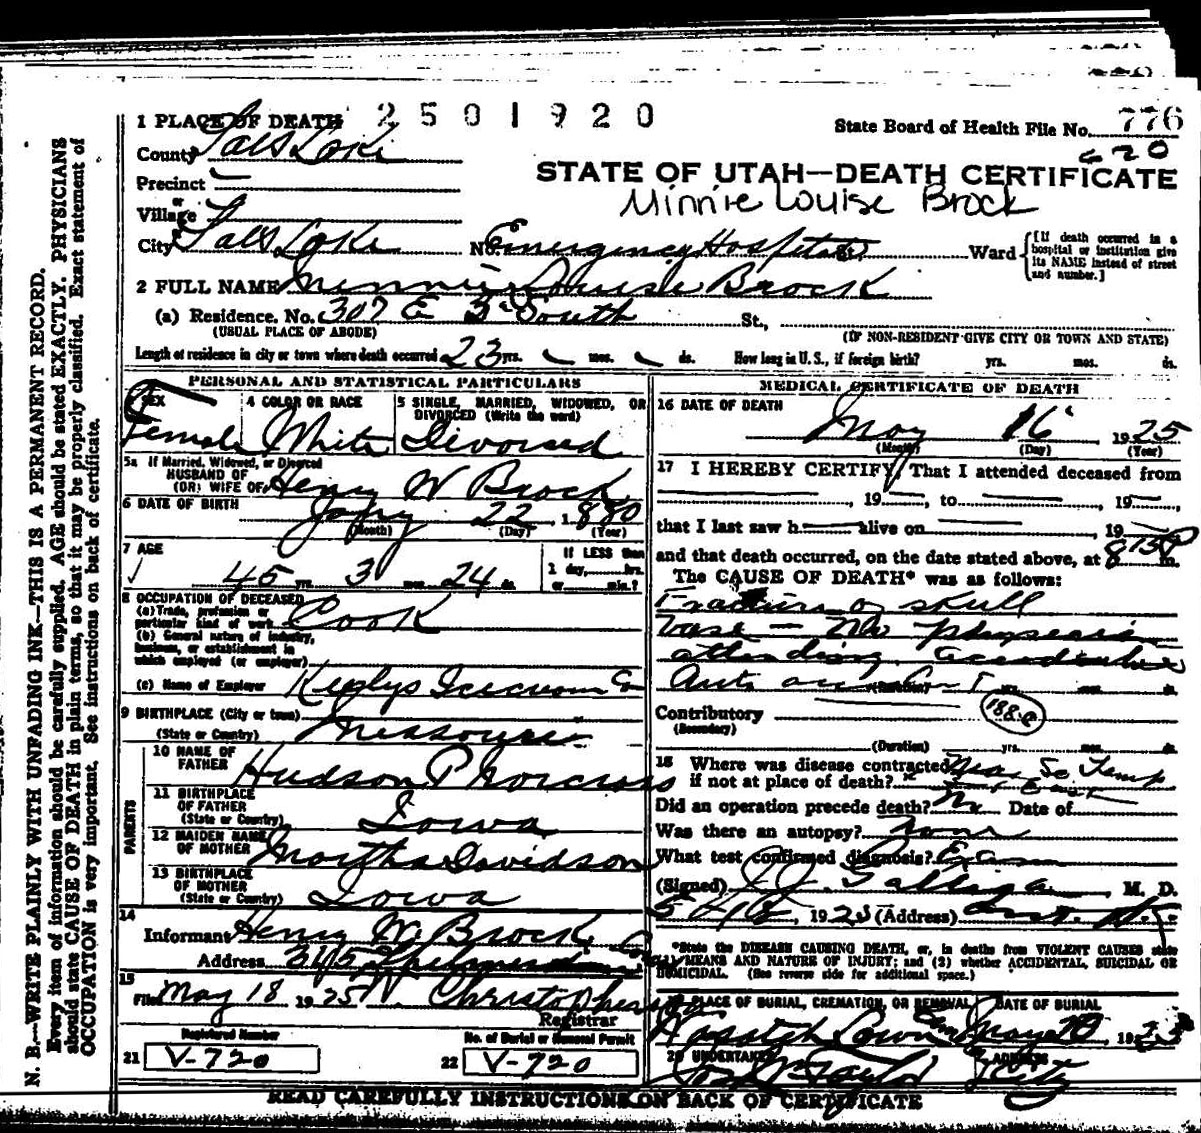 2501920
1 PLACE OF DEATH
State Board of Health File No. 776
County Salt Lake
620
Precinct
STATE OF UTAH—DEATH CERTIFICATE
or
Village
Minnie Louise Brock
City Salt Lake No. Emergency Hospital St. Ward [If death occurred in a hospital or institution give its NAME instead of street and number.]
2 FULL NAME Minnie Louise Brock
(a) Residence. No. 307 E 3d South St.,
(USUAL PLACE OF ABODE) (IF NON-RESIDENT GIVE CITY OR TOWN AND STATE)
Length of residence in city or town where death occurred 23 yrs. mos. ds. How long in U. S., if foreign birth? yrs. mos. ds.
PERSONAL AND STATISTICAL PARTICULARS
SEX
Female
4 COLOR OR RACE
White
5 SINGLE, MARRIED, WIDOWED, OR DIVORCED (Write the word)
Divorced
5a If Married, Widowed, or Divorced
HUSBAND OF
(OR) WIFE OF Henry W Brock
6 DATE OF BIRTH
22, 1880
(Month) (Day) (Year)
7 AGE
45 yrs. 3 mos. 24 ds.
If LESS than
1 day, hrs.
or min.?
8 OCCUPATION OF DECEASED
(a) Trade, profession or
particular kind of work Cook
(b) General nature of industry,
business, or establishment in
which employed (or employer)
(c) Name of Employer Icecream Co
9 BIRTHPLACE (City or town)
(State or Country) Missouri
PARENTS
10 NAME OF
FATHER Hudson P Norcross
11 BIRTHPLACE
OF FATHER
(State or Country) Iowa
12 MAIDEN NAME
OF MOTHER Martha Davidson
13 BIRTHPLACE
OF MOTHER
(State or Country) Iowa
14
Informant Henry W Brock
Address
15
Filed May 18 1925 Christopherson
Registrar
Registered Number
21 V-720
No. of Burial or Removal Permit
22 V-720
MEDICAL CERTIFICATE OF DEATH
16 DATE OF DEATH
May 16 1925
(Month) (Day) (Year)
17 I HEREBY CERTIFY, That I attended deceased from
, 19 , to , 19 ,
that I last saw h alive on , 19
and that death occurred, on the date stated above, at 815P m.
The CAUSE OF DEATH* was as follows:
Fracture of skull
base — No physician
attending. Accidental
Auto accident
(Duration) yrs. mos. ds.
Contributory
(Secondary)
(Duration) yrs. mos. ds.
18 Where was disease contracted
if not at place of death? So Temp
East
Did an operation precede death? No Date of
Was there an autopsy? none
What test confirmed diagnosis? Exam
(Signed) M. D.
, 1925 (Address)
*State the DISEASE CAUSING DEATH, or, in deaths from VIOLENT CAUSES state
(1) MEANS AND NATURE OF INJURY; and (2) whether ACCIDENTAL, SUICIDAL OR
HOMICIDAL. (See reverse side for additional space.)
PLACE OF BURIAL, CREMATION, OR REMOVAL
Wasatch Lawn
DATE OF BURIAL
May 20
20 UNDERTAKER
Taylor
ADDRESS
City
READ CAREFULLY INSTRUCTIONS ON BACK OF CERTIFICATE
N. B.—WRITE PLAINLY WITH UNFADING INK—THIS IS A PERMANENT RECORD.
Every item of information should be carefully supplied. AGE should be stated EXACTLY. PHYSICIANS
should state CAUSE OF DEATH in plain terms, so that it may be properly classified. Exact statement of
OCCUPATION is very important. See instructions on back of certificate.